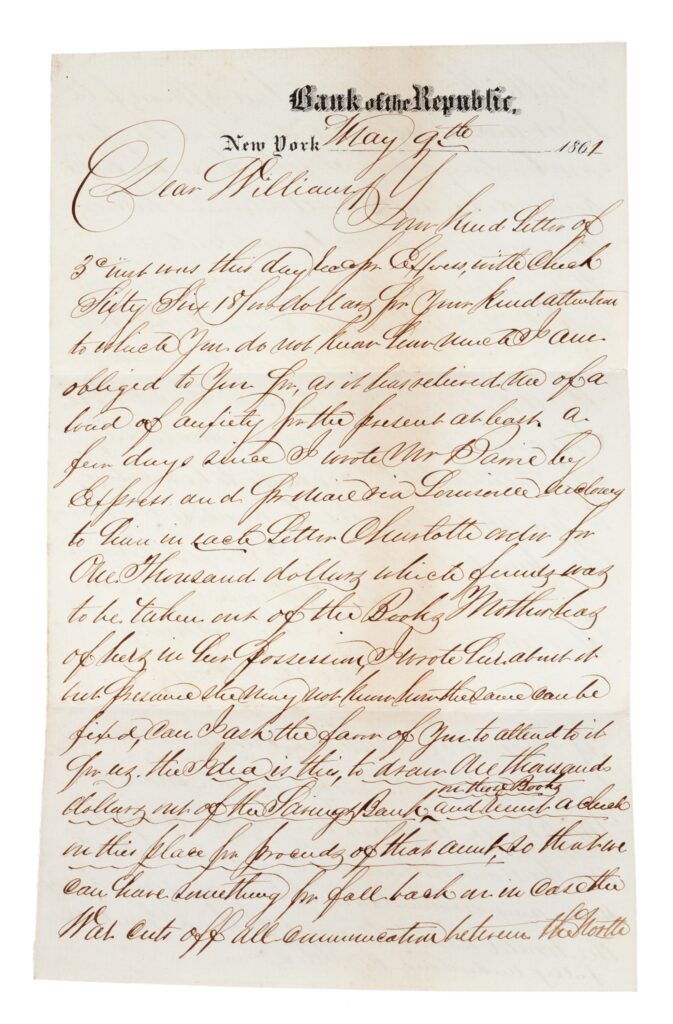 Bank of the Republic,
New York May 9th 1861
Dear William
Your kind Letter of
3d inst was this day recd pr Express, with Check
Sixty Six 18/100 dollars for Your kind attention
to which You do not know how much I am
obliged to You for, as it has relieved me of a
load of anxiety for the present at least. a
few days since I wrote Mr by
Express and pr Mail via Louisville inclosing
to him in each Letter Charlotte order for
One Thousand dollars which funds was
to be taken out of the Books Mother has
of hers in her possession, I wrote her about it
but presume she may not know how the same can be
fixed, can I ask the favor of You to attend to it
for us. the Idea is this, to draw One thousand
dollars out of the Savings Bank, on these Books and remit a check
on this place for proceeds of that amt, so that we
can have something for fall back on in case the
War cuts off all communication between the North